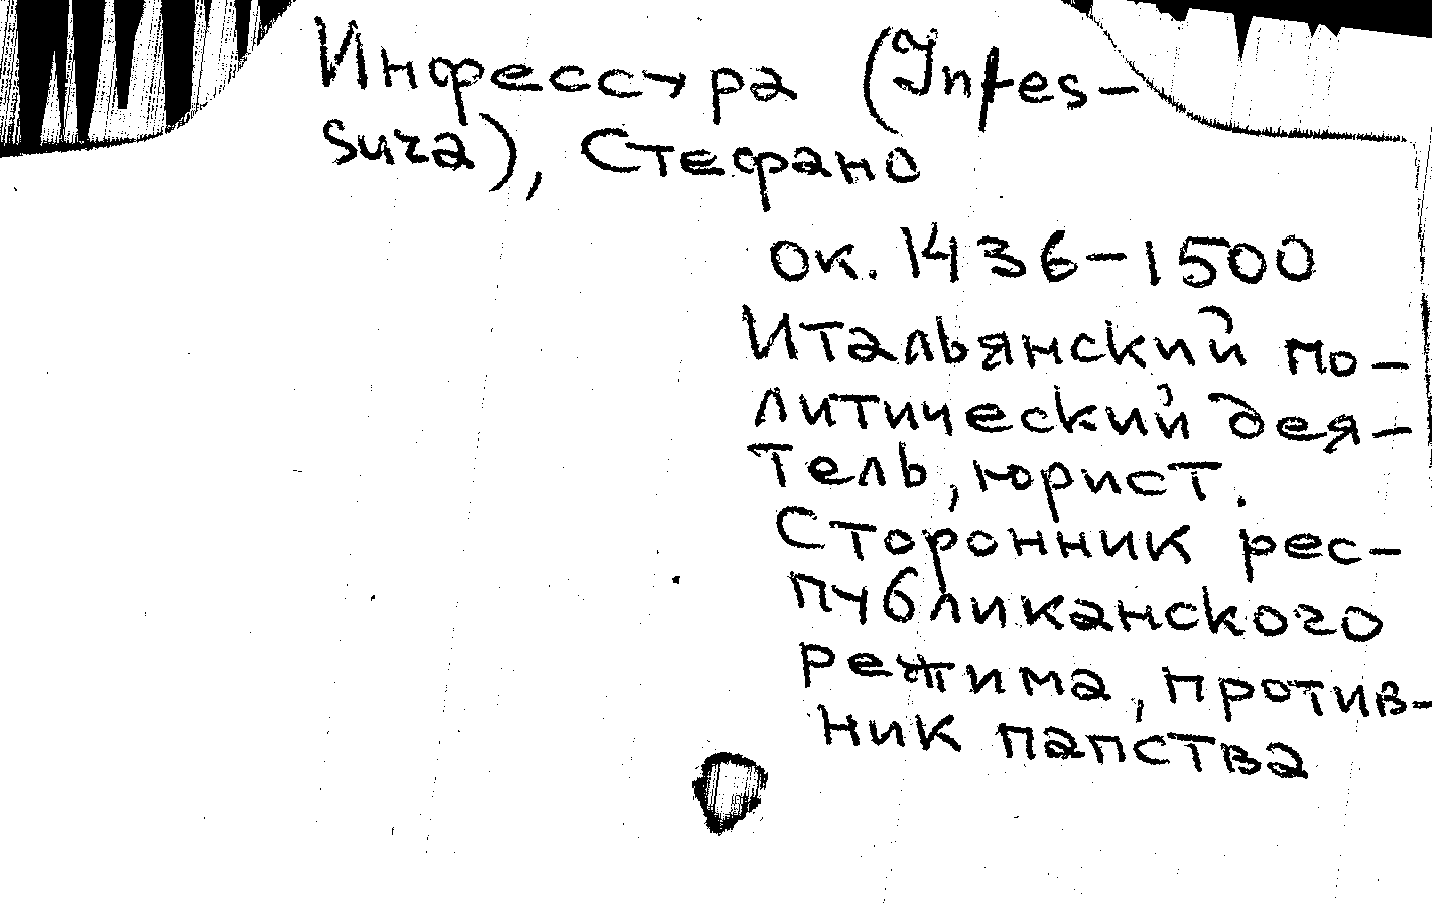 Инфессура (Infes-
sura), Стефано
ок. 1436-1500
Итальянский по-
литический дея-
тель, юрист.
Сторонник рес-
публиканского
режима, против-
ник папства